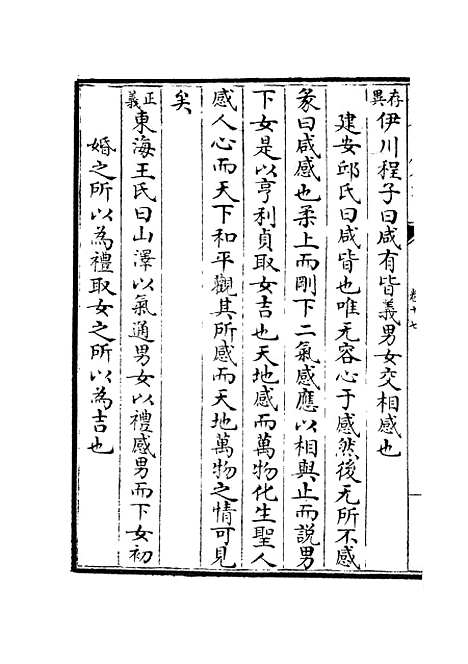 存異伊川程子曰咸有皆義男女交相感也
建安邱氏曰咸皆也唯无容心于感然後无所不感
彖曰咸感也柔上而剛下二氣感應以相與止而說男
下女是以亨利貞取女吉也天地感而萬物化生聖人
感人心而天下和平觀其所感而天地萬物之情可見
矣
正義東海王氏曰山澤以氣通男女以禮感男而下女初
婚之所以為禮取女之所以為吉也
卷十七